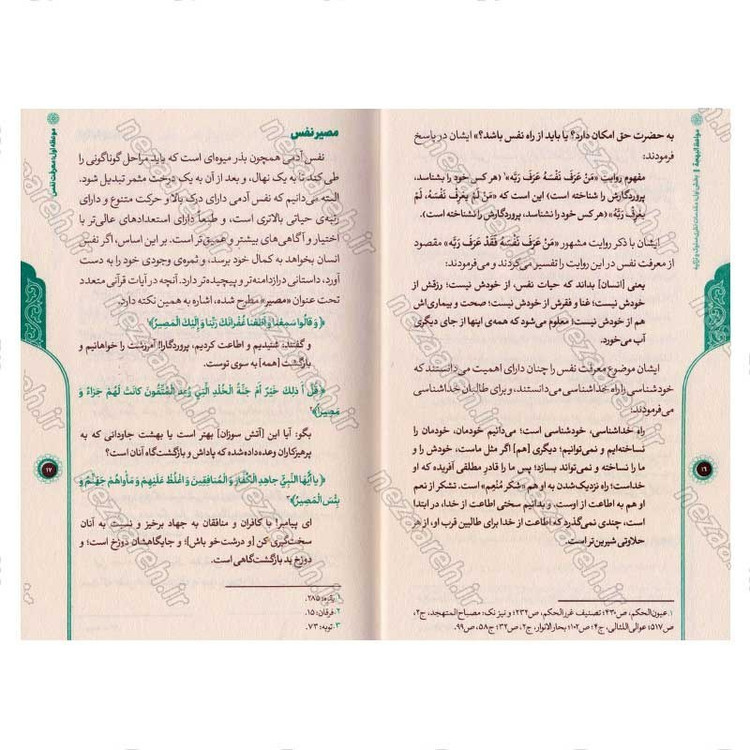 مواعظ البهجة
به حضرت حق امکان دارد؟ یا باید از راه نفس باشد؟» ایشان در پاسخ
فرمودند:
مفهوم روایتِ «مَنْ عَرَفَ نَفْسَهُ عَرَفَ رَبَّه» (هر کس خود را بشناسد،
پروردگارش را شناخته است) این است که «مَنْ لَمْ یَعْرِفْ نَفْسَهُ، لَمْ
یَعْرِفْ رَبَّهُ» (هر کس خود را نشناسد، پروردگارش را نشناخته است).
ایشان با ذکر روایت مشهور «مَنْ عَرَفَ نَفْسَهُ فَقَدْ عَرَفَ رَبَّه» مقصود
از معرفت نفس در این روایت را تفسیر می‌کردند و می‌فرمودند:
یعنی [انسان] بداند که حیات نفس، از خودش نیست؛ رزقش از
خودش نیست؛ غنا و فقرش از خودش نیست؛ صحت و بیماری‌اش
هم از خودش نیست؛ معلوم می‌شود که همه‌ی اینها از جای دیگری
آب می‌خورد.
ایشان موضوع معرفت نفس را چنان دارای اهمیت می‌دانستند که
خودشناسی را راه خداشناسی می‌دانستند، و برای طالبان خداشناسی
می‌فرمودند:
راه خداشناسی، خودشناسی است؛ می‌دانیم خودمان، خودمان را
نساخته‌ایم و نمی‌توانیم؛ دیگری [هم] اگر مثل ماست، خودش را و
ما را نساخته و نمی‌تواند بسازد؛ پس ما را قادرِ مطلقی آفریده که او
خداست؛ راه نزدیک‌شدن به او هم «شکر مُنْعِم» است. تشکر از نعم
او هم به اطاعت از اوست، و بدانیم سختی اطاعت از خدا، در ابتدا
است، چندی نمی‌گذرد که اطاعت از خدا برای طالبین قرب او، از هر
حلاوتی شیرین‌تر است.
۱. عیون‌الحکم، ص۴۳۰؛ تصنیف غررالحکم، ص۲۳۲؛ و نیز نک: مصباح‌المتهجد، ج۲،
ص۵۱۷؛ عوالی‌اللئالی، ج۴؛ ص۱۰۲؛ بحارالانوار، ج۲، ص۳۲؛ ج۵۸، ص۹۹.
۱۶
موعظه اول: معرفت نفس
مصیر نفس
نفس آدمی همچون بذر میوه‌ای است که باید مراحل گوناگونی را
طی کند تا به یک نهال، و بعد از آن به یک درخت مثمر تبدیل شود.
البته می‌دانیم که نفس آدمی دارای درک بالا و حرکت متنوع و دارای
رتبه‌ی حیاتی بالاتری است، و طبعاً دارای استعدادهای عالی‌تر با
اختیار و آگاهی‌های بیشتر و عمیق‌تر است. بر این اساس، اگر نفس
انسان بخواهد به کمال خود برسد، و ثمره‌ی وجودی خود را به دست
آورد، داستانی درازدامنه‌تر و پیچیده‌تر دارد. آنچه در آیات قرآنی متعدد
تحت عنوان «مصیر» مطرح شده، اشاره به همین نکته دارد.
﴿وَ قَالُوا سَمِعْنَا وَ أَطَعْنَا غُفْرَانَكَ رَبَّنَا وَ إِلَيْكَ الْمَصِيرُ﴾۱
و گفتند، شنیدیم و اطاعت کردیم، پروردگارا! آمرزشت را خواهانیم و
بازگشت [همه] به سوی توست.
﴿قُلْ أَ ذلِكَ خَيْرٌ أَمْ جَنَّةُ الْخُلْدِ الَّتِي وُعِدَ الْمُتَّقُونَ كانَتْ لَهُمْ جَزاءً وَ
مَصِيراً﴾۲
بگو: آیا این [آتش سوزان] بهتر است یا بهشت جاودانی که به
پرهیزکاران وعده‌داده‌شده که پاداش و بازگشت‌گاه آنان است؟
﴿يا أَيُّهَا النَّبِيُّ جاهِدِ الْكُفَّارَ وَ الْمُنافِقِينَ وَ اغْلُظْ عَلَيْهِمْ وَ مَأْواهُمْ جَهَنَّمُ وَ
بِئْسَ الْمَصِيرُ﴾۳
ای پیامبر! با کافران و منافقان به جهاد برخیز و نسبت به آنان
سخت‌گیری کن [و درشت‌خو باش]؛ و جایگاهشان دوزخ است؛ و
دوزخ بد بازگشت‌گاهی است.
۱. بقره: ۲۸۵.
۲. فرقان: ۱۵.
۳. توبه: ۷۳.
۱۷
nezaareh.ir